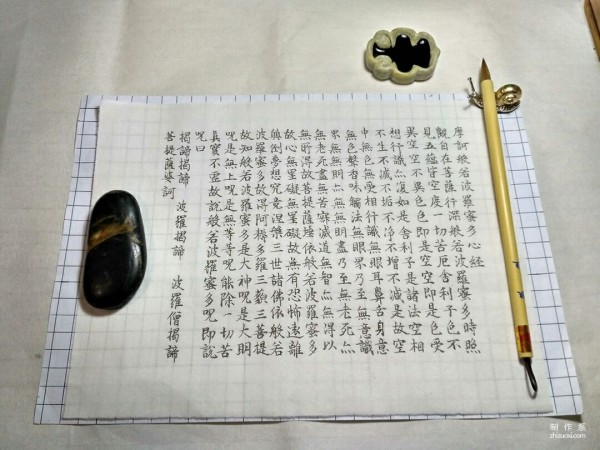 摩訶般若波羅蜜多心経
觀自在菩薩行深般若波羅蜜多時照
見五蘊皆空度一切苦厄舍利子色不
異空空不異色色即是空空即是色受
想行識亦復如是舍利子是諸法空相
不生不滅不垢不净不增不減是故空
中無色無受想行識無眼耳鼻舌身意
無色聲香味觸法無眼界乃至無意識
界無無明亦無無明盡乃至無老死亦
無老死盡無苦集滅道無智亦無得以
無所得故菩提薩埵依般若波羅蜜多
故心無罣礙無罣礙故無有恐怖遠離
顛倒夢想究竟涅槃三世諸佛依般若
波羅蜜多故得阿耨多羅三藐三菩提
故知般若波羅蜜多是大神呪是大明
呪是無上呪是無等等呪能除一切苦
真實不虛故說般若波羅蜜多呪即說
呪曰
揭諦揭諦 波羅揭諦 波羅僧揭諦
菩提薩婆訶
制作系
zhizuoxi.com